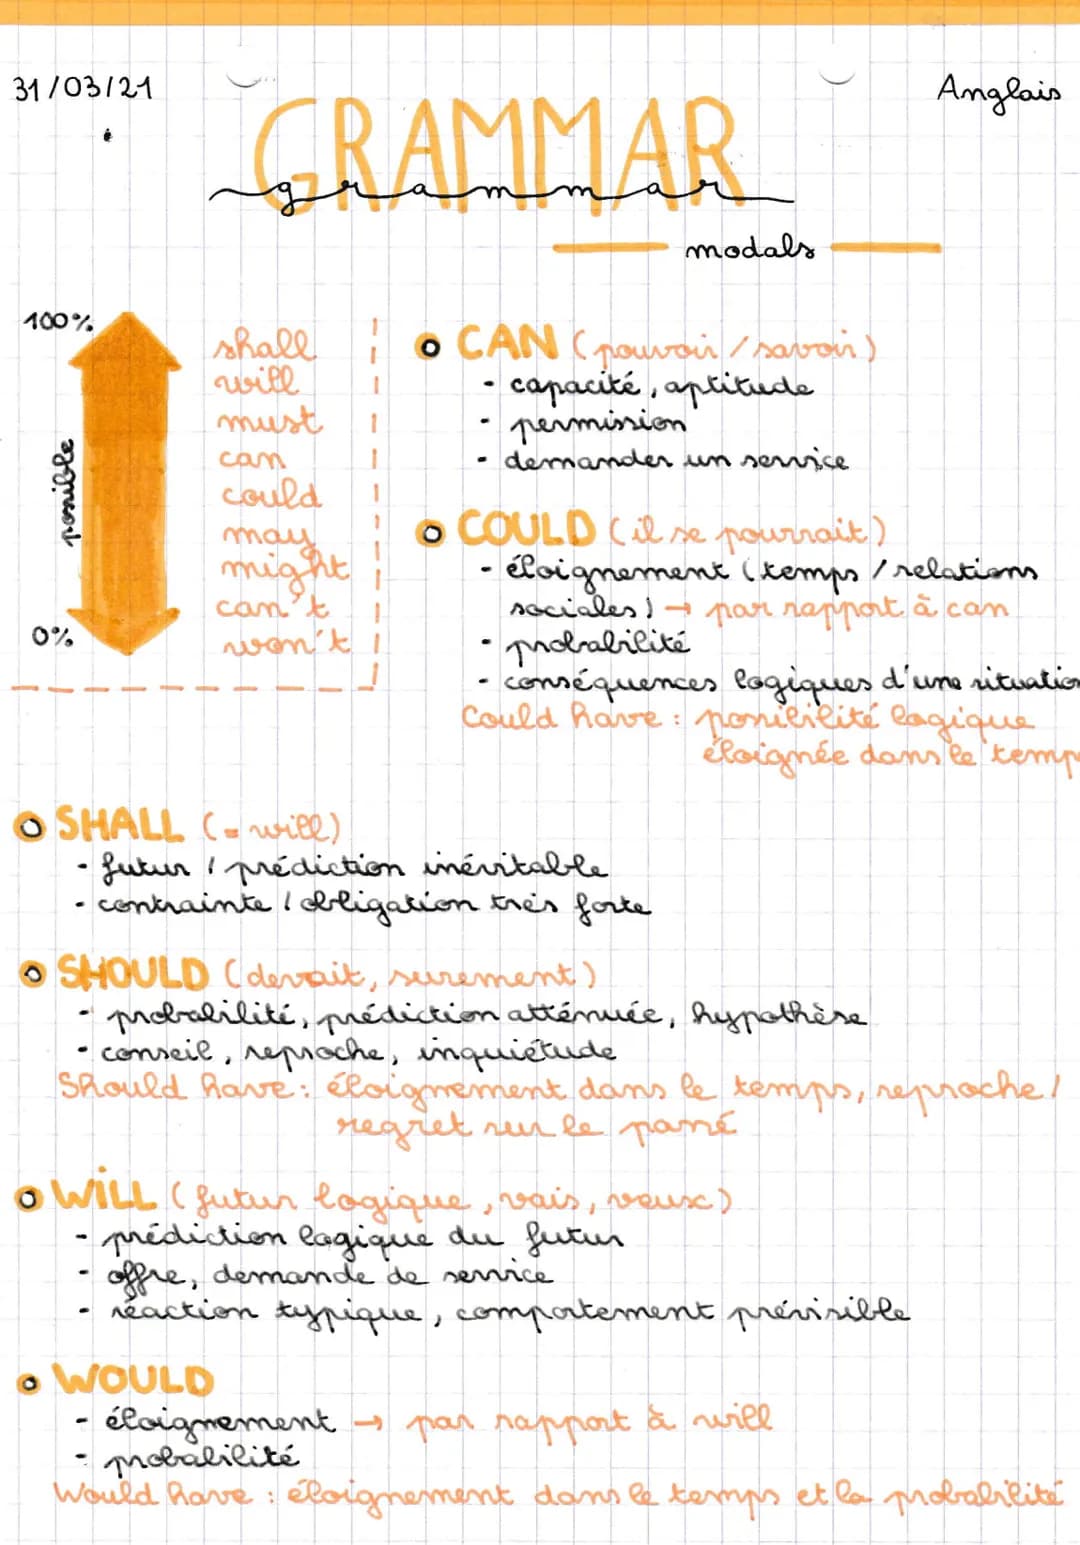 31/03/21
Anglais
GRAMMAR
grammar
modals
100%
possible
0%
shall
will
must
can
could
may
might
can't
won't
CAN (pouvoir / savoir)
- capacité, aptitude
- permission
- demander un service
COULD (il se pourrait)
- éloignement (temps / relations
sociales) → par rapport à can
- probabilité
- conséquences logiques d'une situation
Could have : possibilité logique
éloignée dans le temps
SHALL (= will)
- futur / prédiction inévitable
- contrainte / obligation très forte
SHOULD (devait, surement)
- probabilité, prédiction atténuée, hypothèse
- conseil, reproche, inquiétude
Should have : éloignement dans le temps, reproche /
regret sur le passé
WILL (futur logique, vais, veux)
- prédiction logique du futur
- offre, demande de service
- réaction typique, comportement prévisible
WOULD
- éloignement → par rapport à will
- probabilité
Would have : éloignement dans le temps et la probabilité